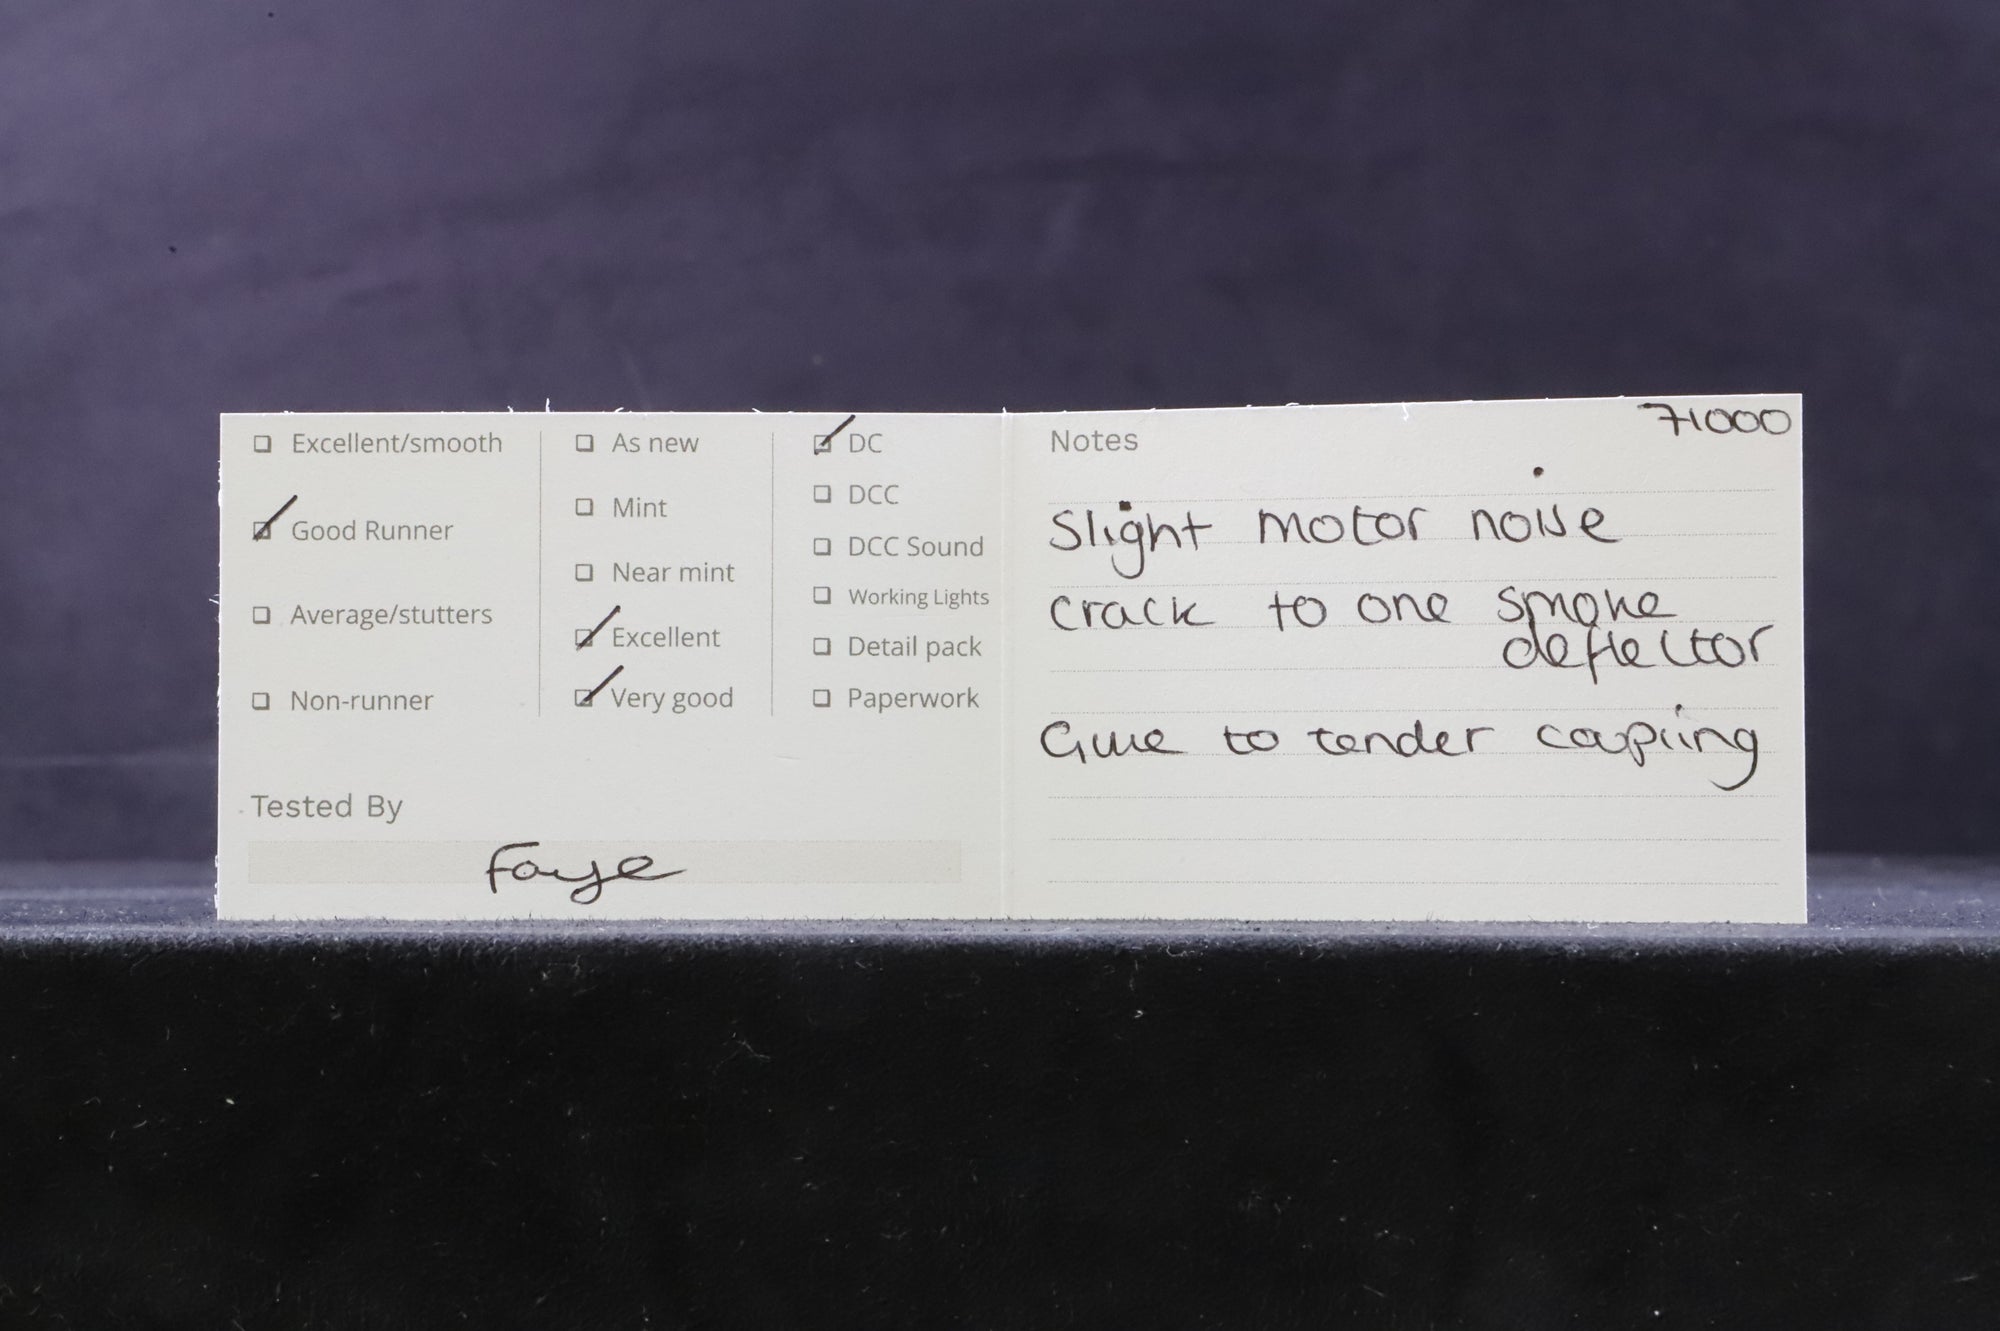 Excellent/smooth
Good Runner
Average/stutters
Non-runner
As new
Mint
Near mint
Excellent
Very good
DC
DCC
DCC Sound
Working Lights
Detail pack
Paperwork
Tested By
Faye
71000
Notes
Slight motor noise
crack to one smoke
deflector
Glue to tender coupling